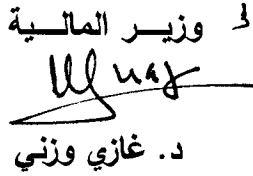 وزيـــر الماليـــة
د. غازي وزني